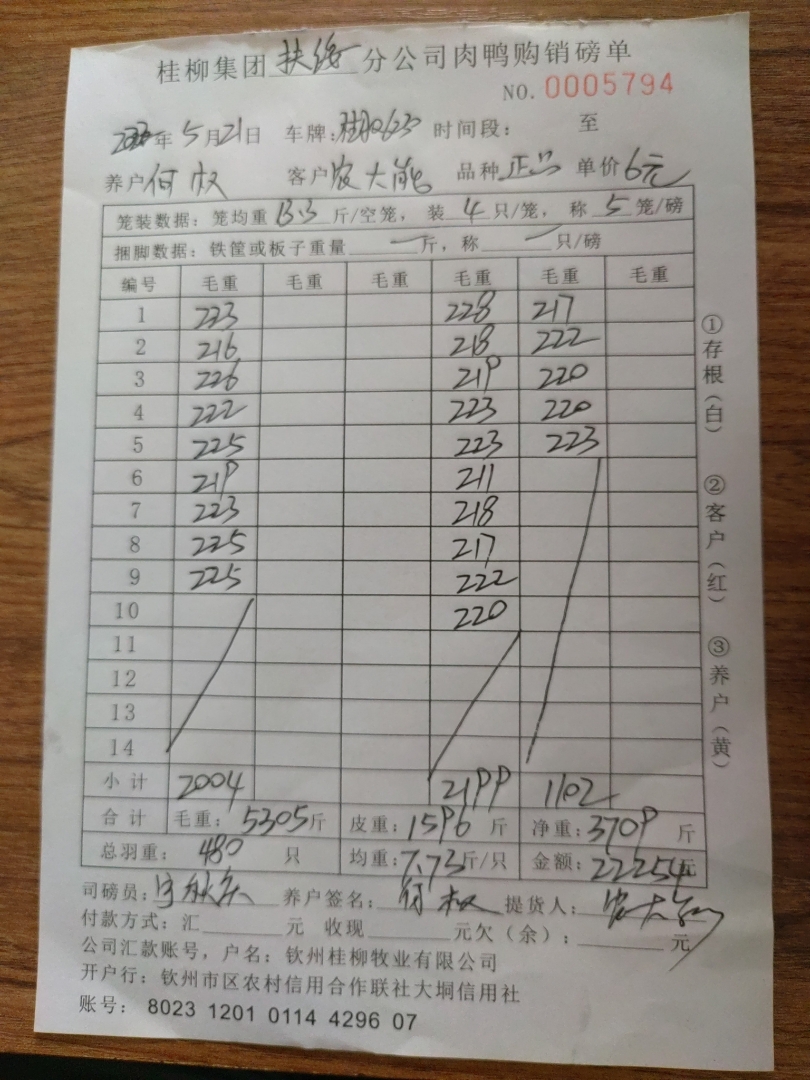 桂柳集团扶绥分公司肉鸭购销磅单
NO. 0005794
年5月21日 车牌: 时间段: 至
养户何权 客户农大能 品种正品 单价6元
笼装数据: 笼均重13.3斤/空笼, 装4只/笼, 称5笼/磅
捆脚数据: 铁筐或板子重量一斤, 称一只/磅
编号 毛重 毛重 毛重 毛重 毛重 毛重
1 223 228 217
2 216 218 222
3 226 219 220
4 222 223 220
5 225 223 223
6 219 211
7 223 218
8 225 217
9 225 222
10 220
11
12
13
14
小计 2004 2199 1102
合计 毛重: 5305斤 皮重: 1596斤 净重: 3709斤
总羽重: 480只 均重: 7.73斤/只 金额: 22254元
司磅员: 养户签名: 何权 提货人: 农大能
付款方式: 汇 元 收现 元欠(余): 元
公司汇款账号, 户名: 钦州桂柳牧业有限公司
开户行: 钦州市区农村信用合作联社大垌信用社
账号: 8023 1201 0114 4296 07
①存根(白) ②客户(红) ③养户(黄)